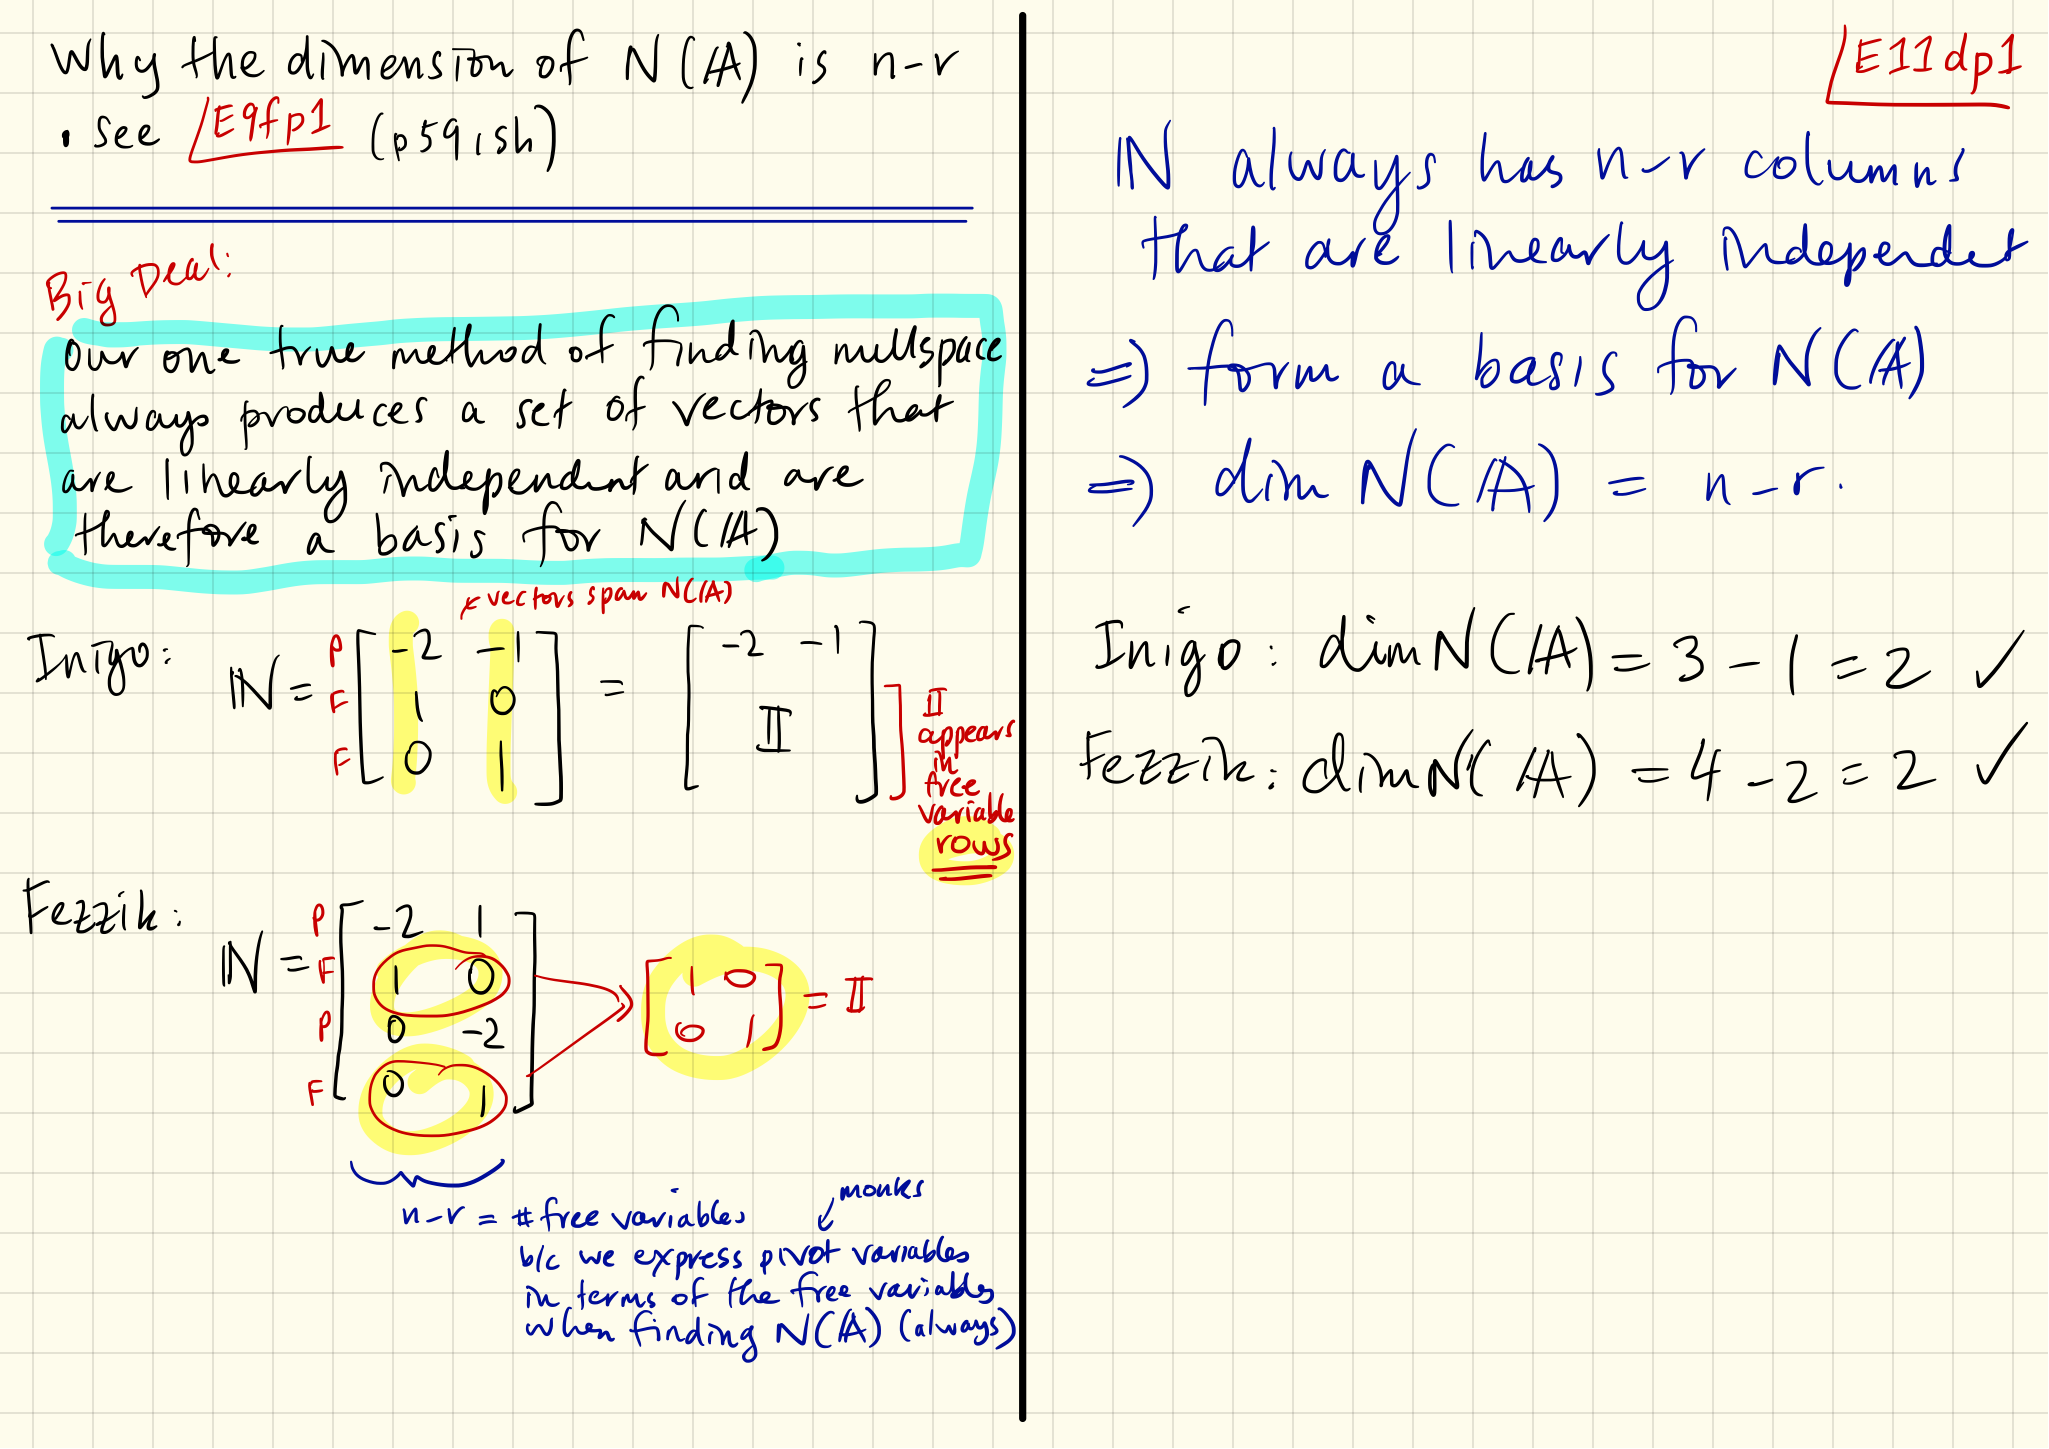 Why the dimension of N(A) is n-r
• see E9fp1 (p59ish)
Big Deal:
Our one true method of finding nullspace
always produces a set of vectors that
are linearly independent and are
therefore a basis for N(A)
← vectors span N(A)
Inigo:
N = P F F [ -2 -1
1 0
0 1 ] = [ -2 -1
I ]
I
appears
in
free
variable
rows
Fezzik:
N = P F P F [ -2 1
1 0
0 -2
0 1 ]
[ 1 0
0 1 ] = I
n-r = # free variables
monks
b/c we express pivot variables
in terms of the free variables
when finding N(A) (always)
E11dp1
N always has n-r columns
that are linearly independet
=> form a basis for N(A)
=> dim N(A) = n-r.
Inigo: dim N(A) = 3 - 1 = 2 ✓
Fezzik: dim N(A) = 4 - 2 = 2 ✓